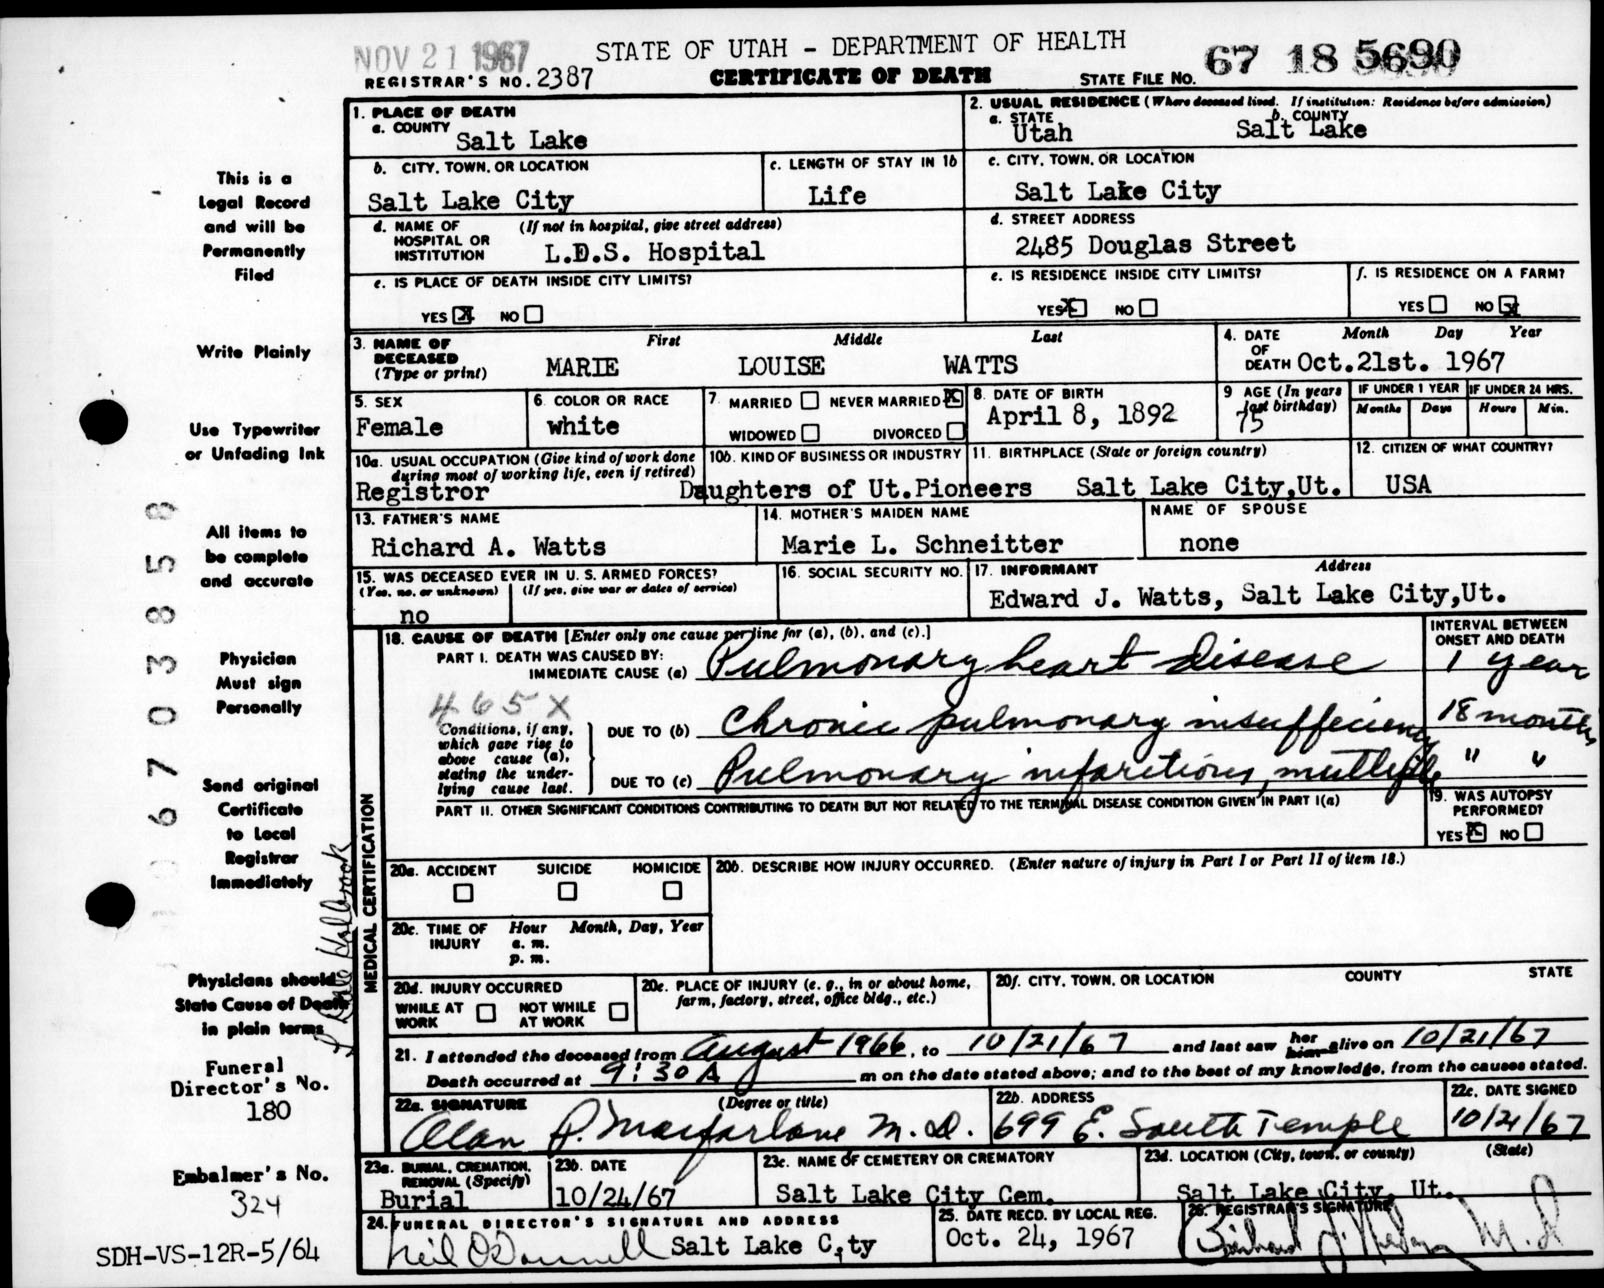 NOV 21 1967
STATE OF UTAH - DEPARTMENT OF HEALTH
67 18 5690
REGISTRAR'S NO. 2387
CERTIFICATE OF DEATH
STATE FILE NO.
This is a
Legal Record
and will be
Permanently
Filed
Write Plainly
Use Typewriter
or Unfading Ink
All items to
be complete
and accurate
Physician
Must sign
Personally
Send original
Certificate
to Local
Registrar
Immediately
Physicians should
State Cause of Death
in plain terms
Funeral
Director's No.
180
Embalmer's No.
324
SDH-VS-12R-5/64
067038858
Dale Holbrook
1. PLACE OF DEATH
a. COUNTY
Salt Lake
2. USUAL RESIDENCE (Where deceased lived. If institution: Residence before admission)
a. STATE b. COUNTY
Utah Salt Lake
b. CITY, TOWN, OR LOCATION
Salt Lake City
c. LENGTH OF STAY IN 1b
Life
c. CITY, TOWN, OR LOCATION
Salt Lake City
d. NAME OF (If not in hospital, give street address)
HOSPITAL OR
INSTITUTION L.D.S. Hospital
d. STREET ADDRESS
2485 Douglas Street
e. IS PLACE OF DEATH INSIDE CITY LIMITS?
YES X NO
e. IS RESIDENCE INSIDE CITY LIMITS?
YES X NO
f. IS RESIDENCE ON A FARM?
YES NO X
3. NAME OF First Middle Last
DECEASED
(Type or print) MARIE LOUISE WATTS
4. DATE Month Day Year
OF
DEATH Oct.21st. 1967
5. SEX
Female
6. COLOR OR RACE
white
7. MARRIED NEVER MARRIED X
WIDOWED DIVORCED
8. DATE OF BIRTH
April 8, 1892
9 AGE (In years
last birthday)
75
IF UNDER 1 YEAR IF UNDER 24 HRS.
Months Days Hours Min.
10a. USUAL OCCUPATION (Give kind of work done
during most of working life, even if retired)
Registror
10b. KIND OF BUSINESS OR INDUSTRY
Daughters of Ut.Pioneers
11. BIRTHPLACE (State or foreign country)
Salt Lake City,Ut.
12. CITIZEN OF WHAT COUNTRY?
USA
13. FATHER'S NAME
Richard A. Watts
14. MOTHER'S MAIDEN NAME
Marie L. Schneitter
NAME OF SPOUSE
none
15. WAS DECEASED EVER IN U. S. ARMED FORCES?
(Yes, no, or unknown) (If yes, give war or dates of service)
no
16. SOCIAL SECURITY NO.
17. INFORMANT Address
Edward J. Watts, Salt Lake City,Ut.
MEDICAL CERTIFICATION
18. CAUSE OF DEATH [Enter only one cause per line for (a), (b), and (c).]
INTERVAL BETWEEN
ONSET AND DEATH
PART I. DEATH WAS CAUSED BY:
IMMEDIATE CAUSE (a) Pulmonary heart disease 1 year
465X
Conditions, if any,
which gave rise to
above cause (a),
stating the under-
lying cause last.
DUE TO (b) Chronic pulmonary insufficiency 18 months
DUE TO (c) Pulmonary infarctions, multiple " "
PART II. OTHER SIGNIFICANT CONDITIONS CONTRIBUTING TO DEATH BUT NOT RELATED TO THE TERMINAL DISEASE CONDITION GIVEN IN PART I(a)
19. WAS AUTOPSY
PERFORMED?
YES X NO
20a. ACCIDENT SUICIDE HOMICIDE
20b. DESCRIBE HOW INJURY OCCURRED. (Enter nature of injury in Part I or Part II of item 18.)
20c. TIME OF Hour Month, Day, Year
INJURY a. m.
p. m.
20d. INJURY OCCURRED
WHILE AT NOT WHILE
WORK AT WORK
20e. PLACE OF INJURY (e. g., in or about home,
farm, factory, street, office bldg., etc.)
20f. CITY, TOWN, OR LOCATION COUNTY STATE
21. I attended the deceased from August 1966, to 10/21/67 and last saw her him alive on 10/21/67
Death occurred at 9:30 A m on the date stated above; and to the best of my knowledge, from the causes stated.
22a. SIGNATURE (Degree or title)
Alan P. Macfarlane M.D.
22b. ADDRESS
699 E. South Temple
22c. DATE SIGNED
10/21/67
23a. BURIAL, CREMATION,
REMOVAL (Specify)
Burial
23b. DATE
10/24/67
23c. NAME OF CEMETERY OR CREMATORY
Salt Lake City Cem.
23d. LOCATION (City, town, or county) (State)
Salt Lake City, Ut.
24. FUNERAL DIRECTOR'S SIGNATURE AND ADDRESS
Neil O'Donnell Salt Lake C,ty
25. DATE RECD. BY LOCAL REG.
Oct. 24, 1967
26. REGISTRAR'S SIGNATURE
M.D